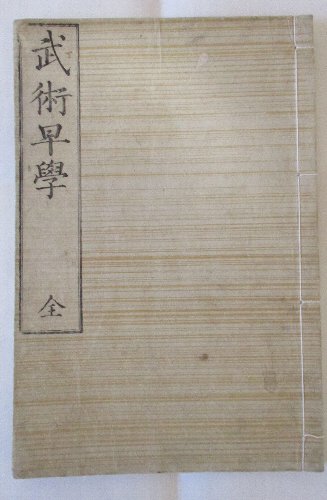 武術早學
全